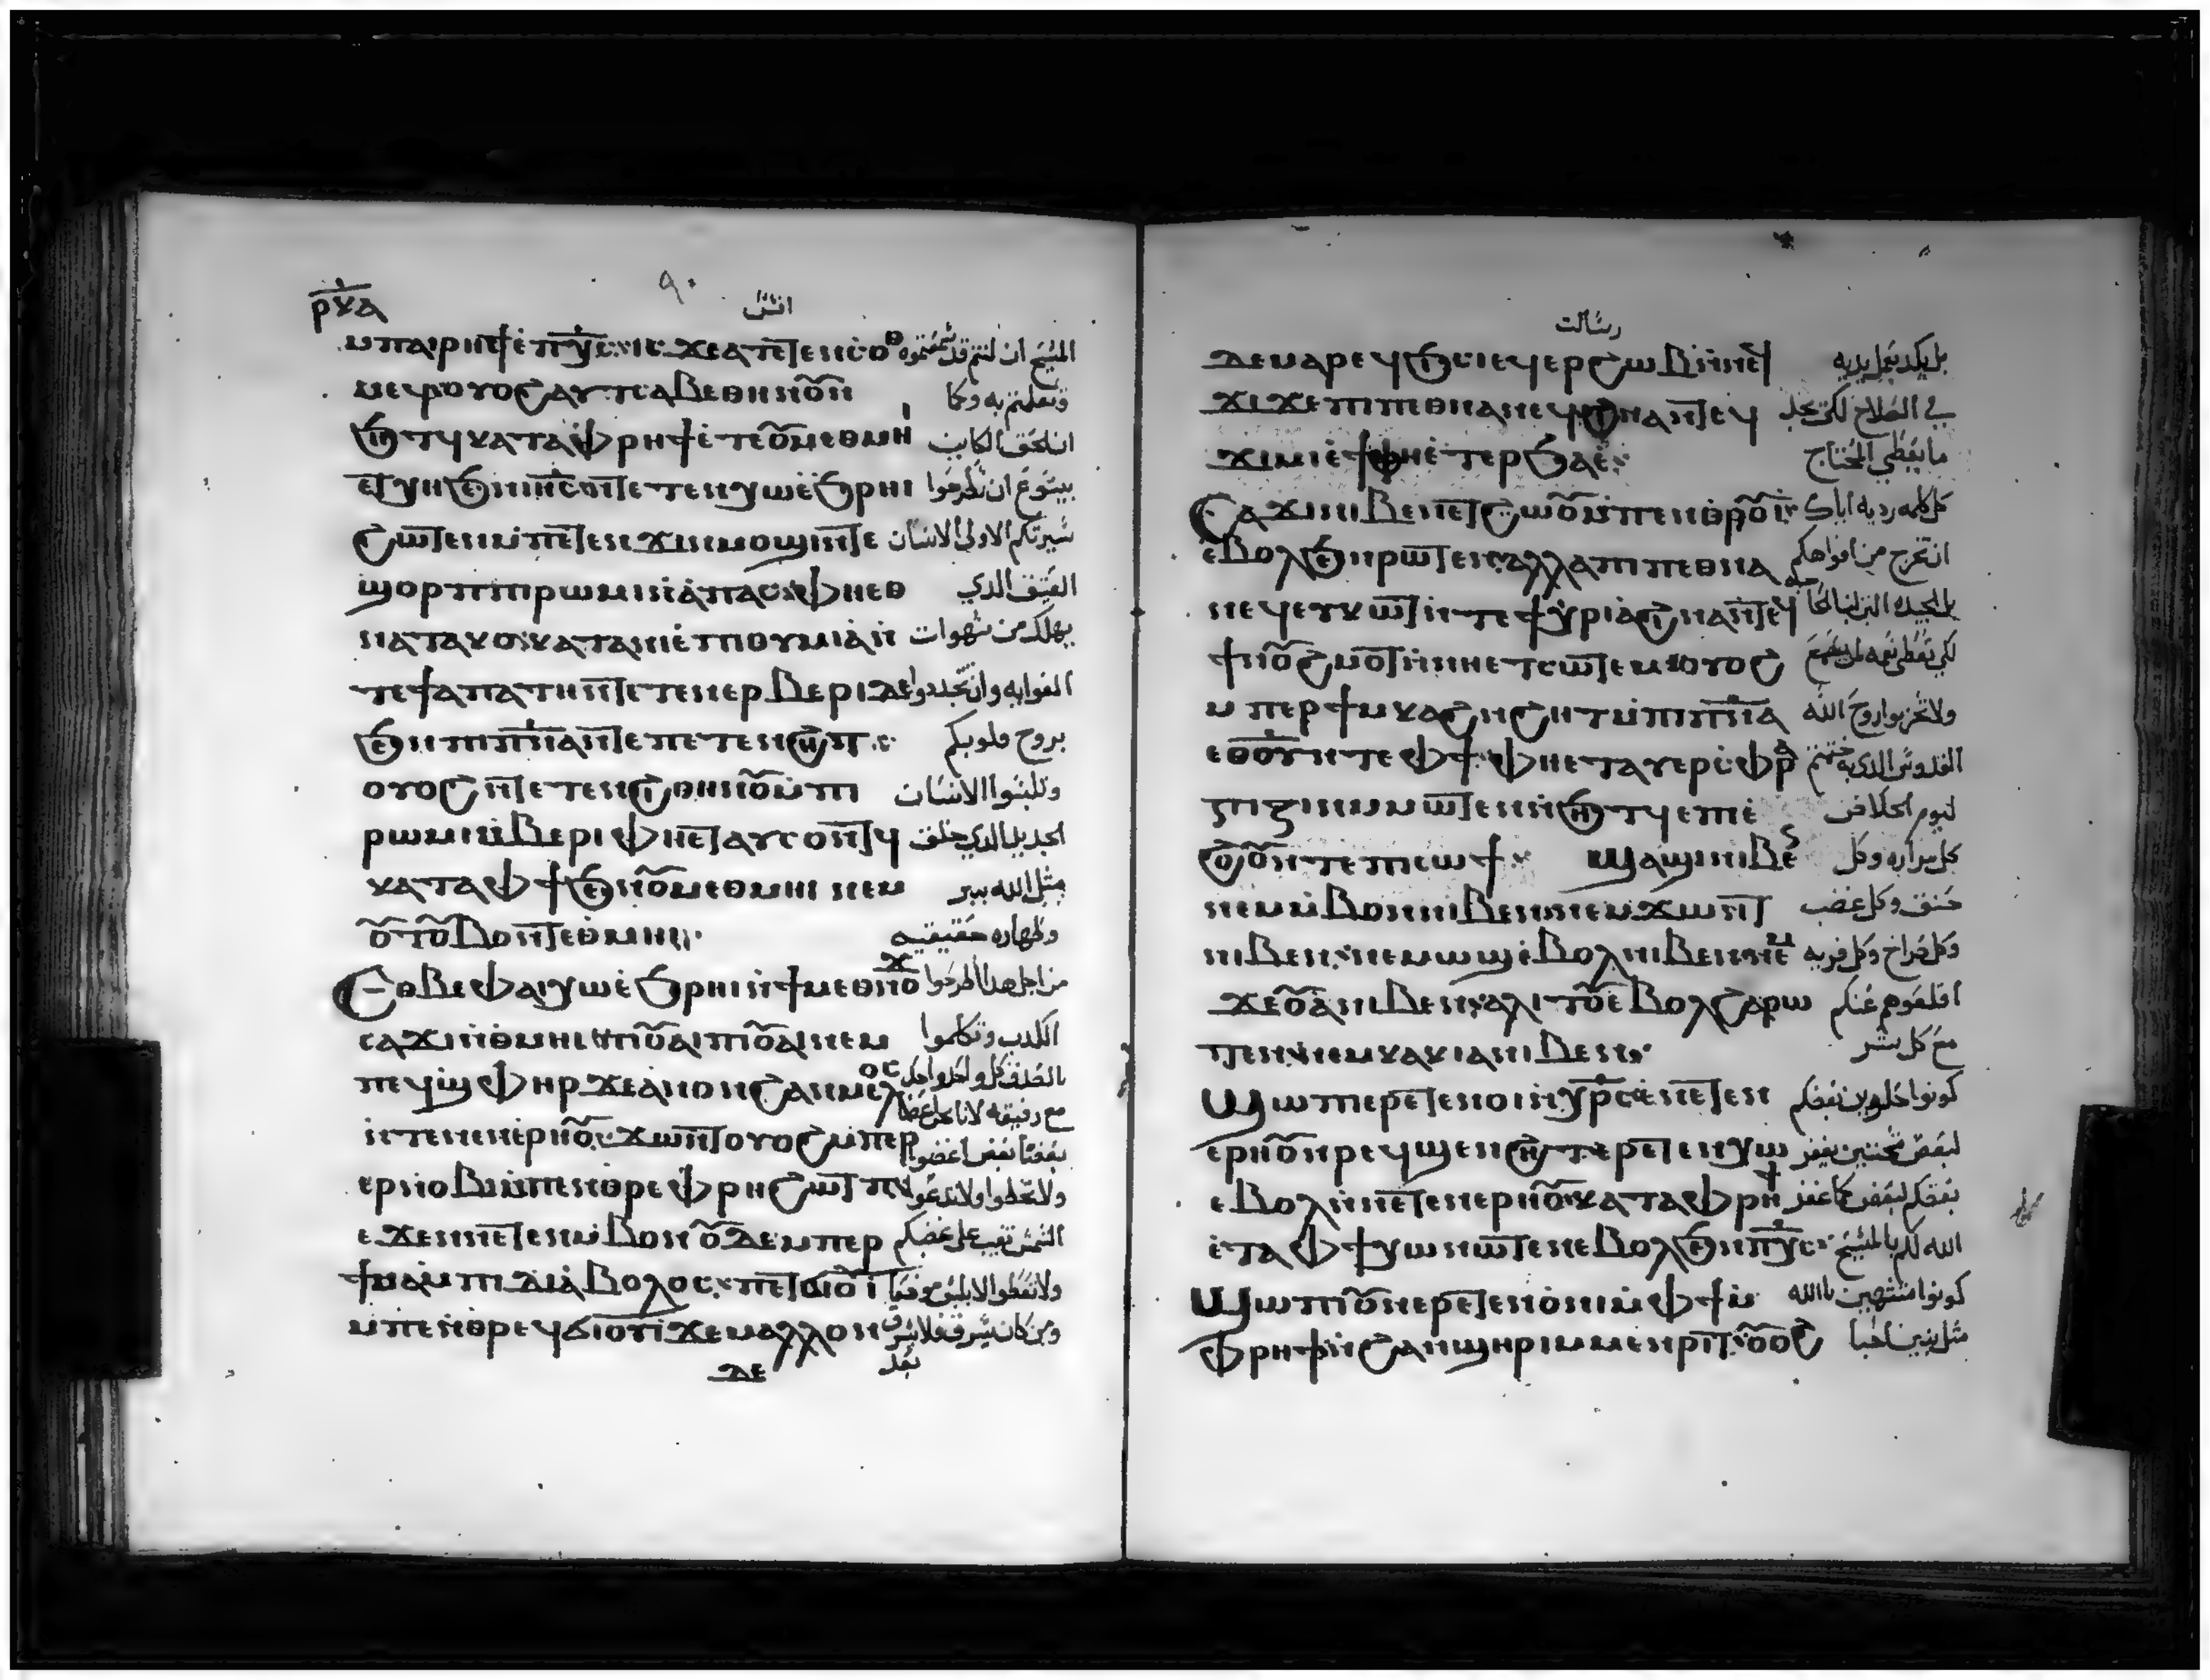 ⲣⲝⲁ ٩٠ افسس
ⲙⲡⲁⲓⲣⲏϯ ⲉⲡⲭ̅ⲥ̅ ⲓⲥϫⲉ ⲁⲧⲉⲧⲉⲛⲥⲟⲑ المسيح ان كنتم قد سمعتموه
ⲙⲉϥ ⲟⲩⲟϩ ⲁⲩⲧⲥⲁⲃⲉ ⲑⲏⲛⲟⲩ ⲛ وتعلمتم به وكما
ϧⲏⲧϥ ⲕⲁⲧⲁ ⲫⲣⲏϯ ⲉⲧⲉ ⲟⲩⲙⲉⲑⲙⲏⲓ ان الحق الكاين
ⲉⲧⲭⲏ ϧⲉⲛ ⲓⲏⲥ ⲛⲧⲉⲧⲉⲛⲭⲱ ⲉϧⲣⲏⲓ بيسوع ان تطرحوا
ϩⲱⲧⲉⲛ ⲙⲡⲉⲧⲉⲛϫⲓⲛⲙⲟϣⲓ ⲛⲧⲉ سيرتكم الاولى الانسان
ϣⲟⲣⲡ ⲡⲓⲣⲱⲙⲓ ⲛⲁⲡⲁⲥ ⲫⲏⲉⲑ العتيق الدي
ⲛⲁⲧⲁⲕⲟ ⲕⲁⲧⲁ ⲛⲓⲉⲡⲓⲑⲩⲙⲓⲁ ⲛ يهلك من شهوات
ⲧⲉ ϯⲁⲡⲁⲧⲏ ⲛⲧⲉⲧⲉⲛⲉⲣⲃⲉⲣⲓ ⲇⲉ الغوايه وان تتجددوا
ϧⲉⲛ ⲡⲓⲡ̅ⲛ̅ⲁ̅ ⲛⲧⲉ ⲡⲉⲧⲉⲛϩⲏⲧ بروح قلوبكم
ⲟⲩⲟϩ ⲛⲧⲉⲧⲉⲛϩⲓ ⲑⲏⲛⲟⲩ ⲙⲡⲓ وتلبسوا الانسان
ⲣⲱⲙⲓ ⲙⲃⲉⲣⲓ ⲫⲏⲉⲧⲁⲩⲥⲟⲛⲧϥ الجديد الدي خلق
ⲕⲁⲧⲁ ⲫϯ ϧⲉⲛ ⲟⲩⲙⲉⲑⲙⲏⲓ ⲛⲉⲙ مثل الله ببر
ⲟⲩⲧⲟⲩⲃⲟ ⲛⲧⲉ ⲑⲙⲏⲓ وطهاره حقيقيه
Ⲉⲑⲃⲉ ⲫⲁⲓ ⲭⲱ ⲉϧⲣⲏⲓ ⲛϯⲙⲉⲑⲛⲟⲩϫ من اجل هدا اطرحوا
ⲥⲁϫⲓ ⲛⲑⲙⲏⲓ ⲡⲓⲟⲩⲁⲓ ⲡⲓⲟⲩⲁⲓ ⲛⲉⲙ الكدب وتكلموا
ⲡⲉϥϣⲫⲏⲣ ϫⲉ ⲁⲛⲟⲛ ϩⲁⲛⲙⲉⲗⲟⲥ بالصدق كل واحد واحد
مع رفيقه لاننا نحن اعضا
ⲛⲧⲉ ⲛⲉⲛⲉⲣⲏⲟⲩ ϫⲱⲛⲧ ⲟⲩⲟϩ ⲙⲡⲉⲣ بعضنا بعض اغضبوا
ⲉⲣⲛⲟⲃⲓ ⲙⲡⲉⲛⲑⲣⲉ ⲫⲣⲏ ϩⲱⲧⲡ ولا تخطوا ولا تدعوا
ⲉϫⲉⲛ ⲡⲉⲧⲉⲛⲙⲃⲟⲛ ⲟⲩⲇⲉ ⲙⲡⲉⲣ الشمس تغيب على غضبكم
ϯⲙⲁ ⲙⲡⲓⲇⲓⲁⲃⲟⲗⲟⲥ ⲡⲉⲧϭⲓⲟⲩⲓ ولا تعطوا الابليس موضعا
ⲙⲡⲉⲛⲑⲣⲉϥϭⲓⲟⲩⲓ ϫⲉ ⲙⲁⲗⲗⲟⲛ ومن كان يسرق فلا يسرق
ⲇⲉ بعد
رسالت
ⲇⲉ ⲙⲁⲣⲉϥϧⲓⲥⲓ ⲉϥⲉⲣϩⲱⲃ ⲛⲛⲉϥ بل يكد يعمل بيديه
ϫⲓϫ ⲉⲡⲓⲡⲉⲑⲛⲁⲛⲉϥ ϩⲓⲛⲁ ⲛⲧⲉϥ في الصلاح لكي يجد
ϫⲓⲙⲓ ⲉϯ ⲙⲫⲏⲉⲧⲉⲣϧⲁⲉ ما يعطي المحتاج
Ⲥⲁϫⲓ ⲛⲓⲃⲉⲛ ⲉⲧϩⲱⲟⲩ ⲙⲡⲉⲛⲑⲣⲟⲩⲓ كل كلمه رديه اياك
ⲉⲃⲟⲗ ϧⲉⲛ ⲣⲱⲧⲉⲛ ⲁⲗⲗⲁ ⲡⲓⲡⲉⲑⲛⲁ ان تخرج من افواهكم
ⲛⲉϥ ⲉⲩⲕⲱⲧ ⲛⲧⲉ ϯⲭⲣⲓⲁ ϩⲓⲛⲁ ⲛⲧⲉϥ بل الجيده الي لبنا الحاجه
ϯ ⲛⲟⲩϩⲙⲟⲧ ⲛⲛⲏⲉⲧⲥⲱⲧⲉⲙ ⲟⲩⲟϩ لكي تعطى نعمه لمن يسمع
ⲙⲡⲉⲣϯⲙⲕⲁϩ ⲛϩⲏⲧ ⲙⲡⲓⲡ̅ⲛ̅ⲁ̅ ولا تحزنوا روح الله
ⲉⲑⲟⲩ ⲛⲧⲉ ⲫϯ ⲫⲏⲉⲧⲁⲩⲉⲣⲥⲫⲣⲁ القدوس الدي به ختمتم
ⲅⲓⲍⲓⲛ ⲙⲙⲱⲧⲉⲛ ⲛϧⲏⲧϥ ⲉⲡⲓⲉ ليوم الخلاص
ϩⲟⲟⲩ ⲛⲧⲉ ⲡⲓⲥⲱϯ ϣⲁϣⲓ ⲛⲓⲃⲉⲛ كل مراره وكل
ⲛⲉⲙ ⲙⲃⲟⲛ ⲛⲓⲃⲉⲛ ⲛⲉⲙ ϫⲱⲛⲧ حنق وكل غضب
ⲛⲓⲃⲉⲛ ⲛⲉⲙ ⲱϣ ⲉⲃⲟⲗ ⲛⲓⲃⲉⲛ ⲛⲉⲙ وكل صراخ وكل فريه
ϫⲉⲟⲩⲁ ⲛⲓⲃⲉⲛ ⲁⲗⲓⲧⲟⲩ ⲉⲃⲟⲗ ϩⲁⲣⲱ اقلعوهم عنكم
ⲧⲉⲛ ⲛⲉⲙ ⲕⲁⲕⲓⲁ ⲛⲓⲃⲉⲛ مع كل شر
Ϣⲱⲡⲓ ⲉⲣⲉⲧⲉⲛⲟⲓ ⲛⲭⲣ̅ⲥ̅ ⲉⲛⲉⲧⲉⲛ كونوا حلوين بعضكم
ⲉⲣⲏⲟⲩ ⲛⲣⲉϥϣⲉⲛϩⲏⲧ ⲉⲣⲉⲧⲉⲛⲭⲱ لبعض متحننين يغفر
ⲉⲃⲟⲗ ⲛⲛⲉⲧⲉⲛⲉⲣⲏⲟⲩ ⲕⲁⲧⲁ ⲫⲣⲏϯ بعضكم لبعض كما غفر
ⲉⲧⲁ ⲫϯ ⲭⲱ ⲛⲱⲧⲉⲛ ⲉⲃⲟⲗ ϧⲉⲛ ⲡⲭ̅ⲥ̅ الله لكم بالمسيح
Ϣⲱⲡⲓ ⲟⲩⲛ ⲉⲣⲉⲧⲉⲛⲟⲛⲓ ⲙⲫϯ ⲙ كونوا متشبهين بالله
ⲫⲣⲏϯ ⲛϩⲁⲛϣⲏⲣⲓ ⲙⲙⲉⲛⲣⲓⲧ ⲟⲩⲟϩ مثل بنين احبا